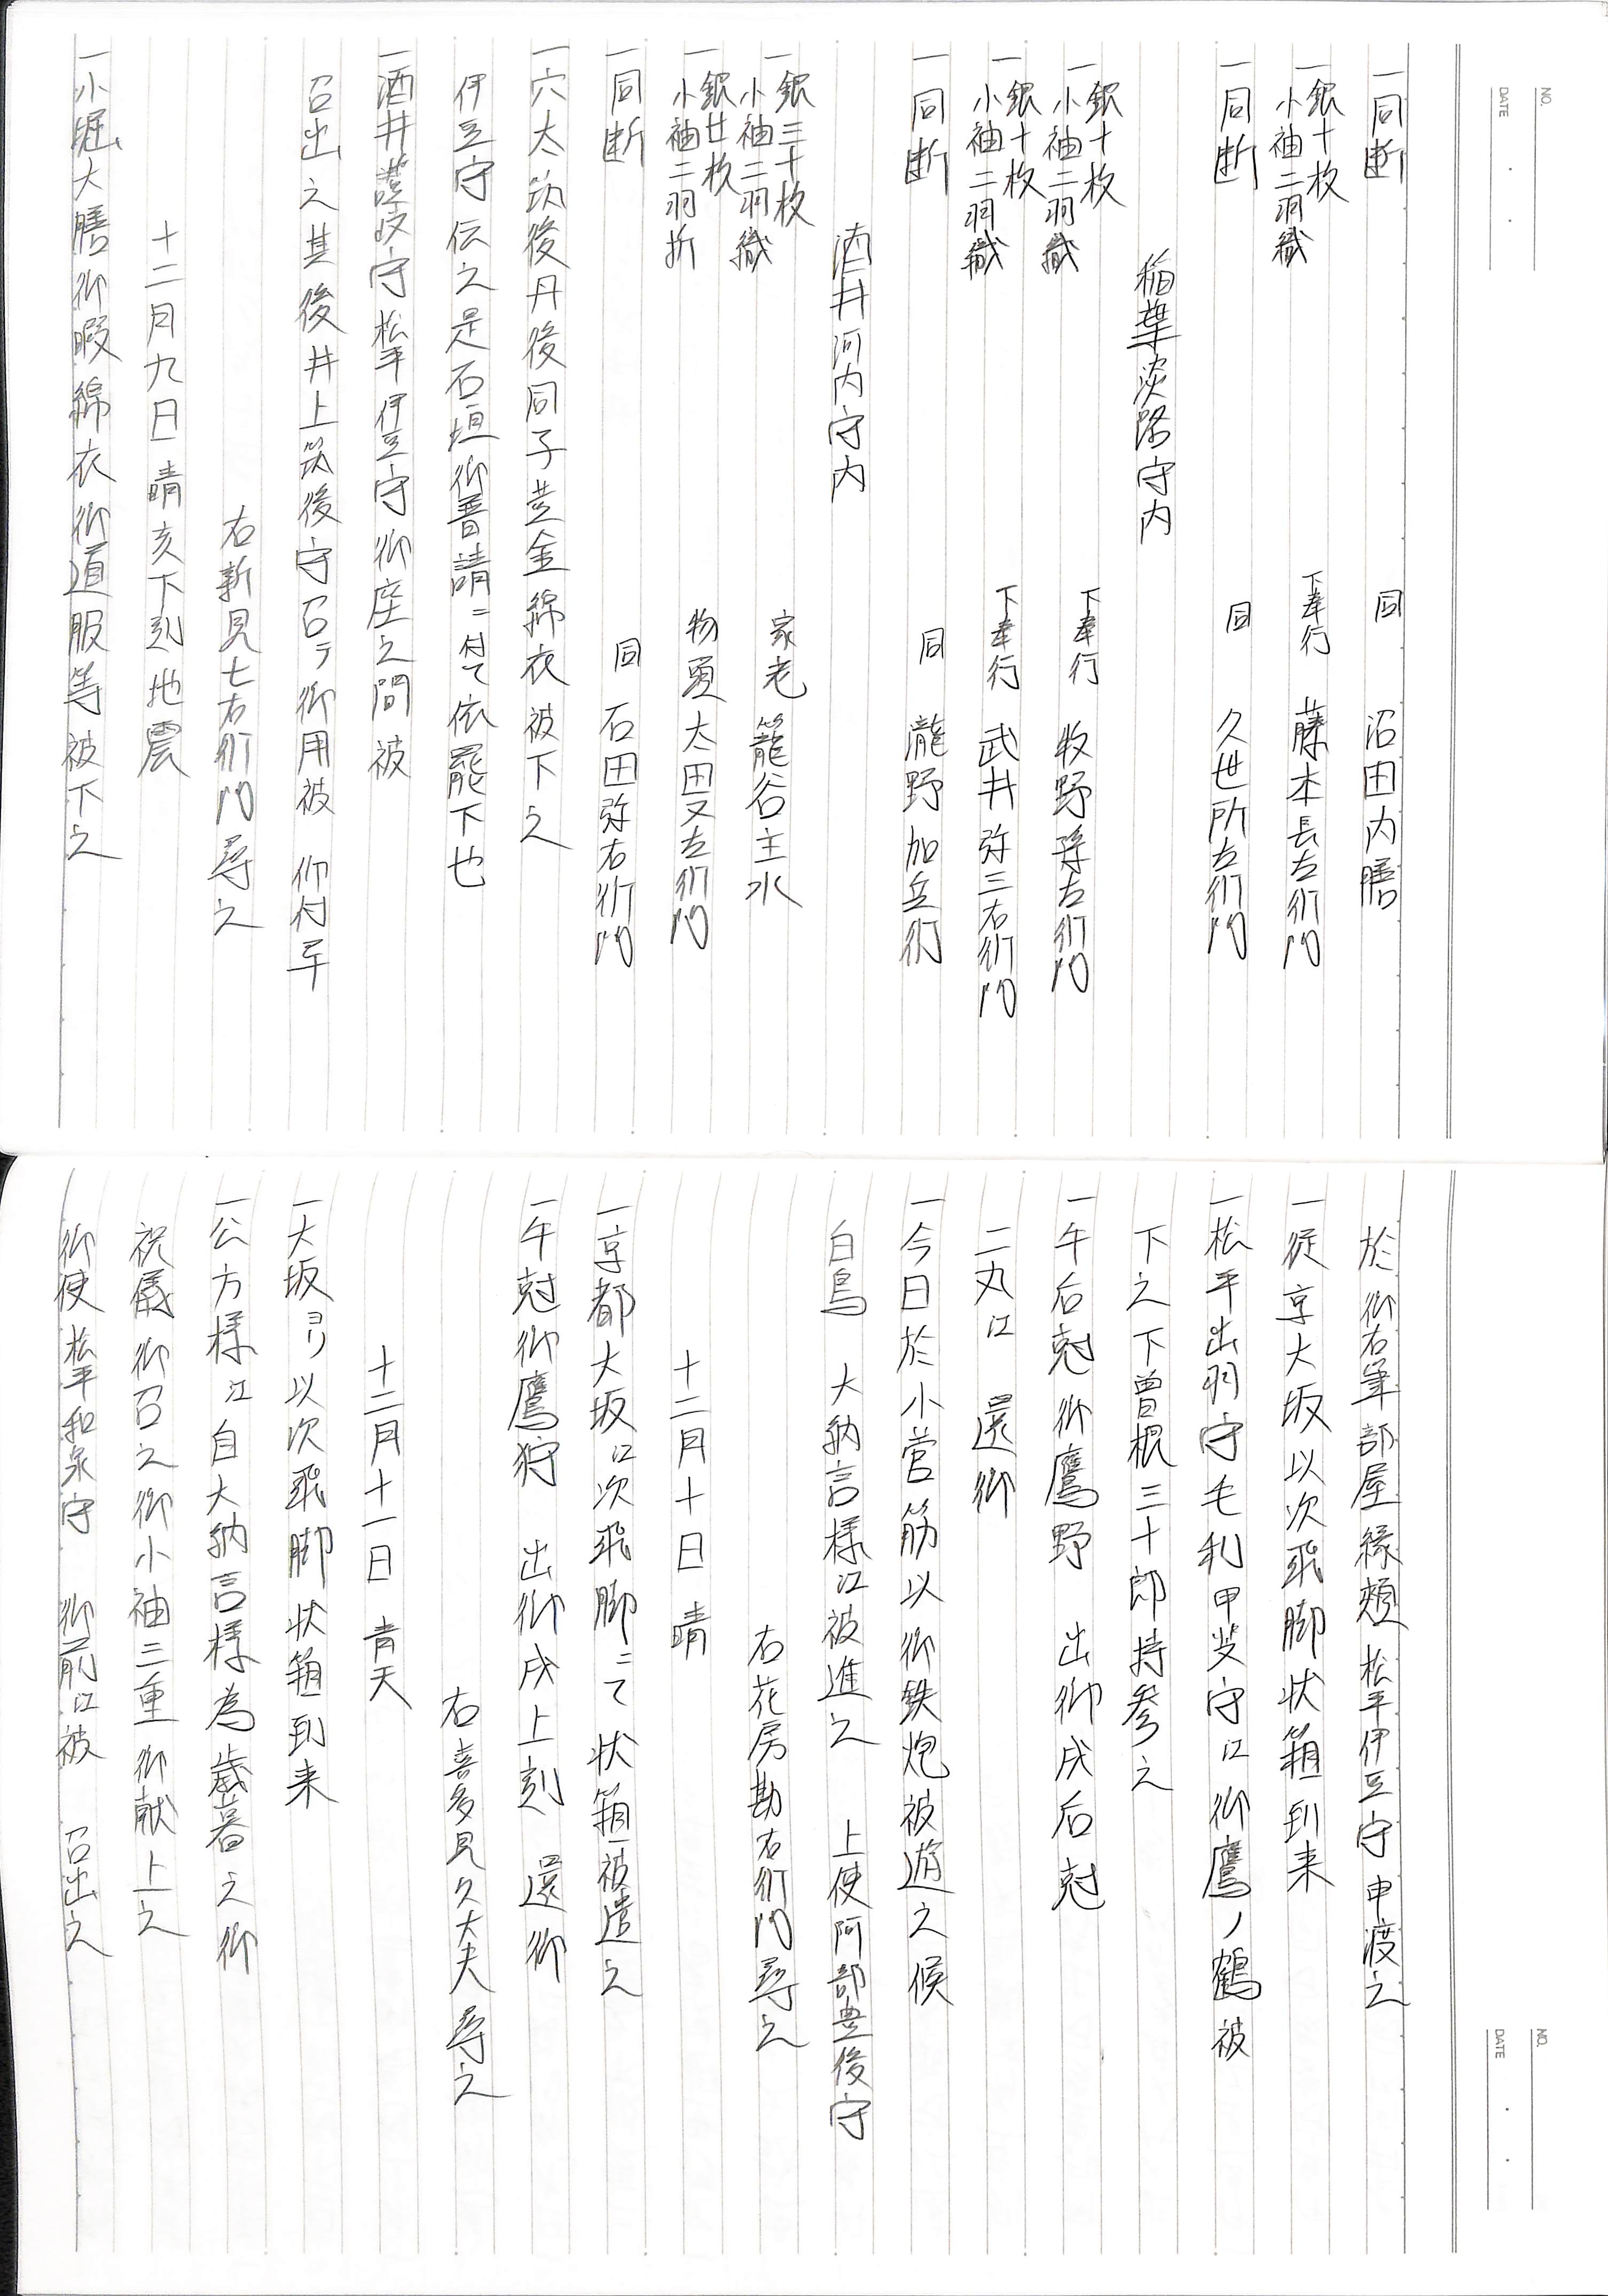 NO.
DATE
一同断 同 沼田内膳
一銀十枚 小袖二羽織 下奉行 藤本長左衛門
一同断 同 久世所左衛門
稲葉淡路守内
一銀十枚 小袖二羽織 下奉行 牧野 左衛門
一銀十枚 小袖二羽織 下奉行 武井弥三右衛門
一同断 同 瀧野加兵衛
酒井河内守内
一銀三十枚 小袖二羽織 家老 籠谷主水
一銀廿枚 小袖二羽折 物頭 太田又左衛門
一同断 同 石田弥右衛門
一穴太筑後丹後同子共金綿衣被下之
伊豆守伝之是石垣御普請ニ付て依罷下也
一酒井讃岐守松平伊豆守御座之間被
召出之其後井上筑後守召テ御用被 仰付年
右新見七右衛門尋之
十二月九日晴亥下刻地震
一小堀大膳御暇綿衣御道服等被下之
NO.
DATE
於御右筆部屋縁頬松平伊豆守申渡之
一従京大坂以次飛脚状箱到来
一松平出羽守毛利甲斐守江御鷹ノ鶴被
下之下曽根三十郎持参之
一午后尅御鷹野 出御戌后尅
二丸江 還御
一今日於小菅筋以御鉄炮被遊之候
白鳥 大納言様江被進之 上使阿部豊後守
右花房勘右衛門尋之
十二月十日 晴
一京都大坂江次飛脚ニて状箱被遣之
一午尅御鷹狩 出御戌上刻 還御
右喜多見久大夫尋之
十二月十一日 青天
一大坂ヨリ以次飛脚状箱到来
一公方様江自大納言様為歳暮之御
祝儀御召之御小袖三重御献上之
御使松平和泉守 御前江被 召出之